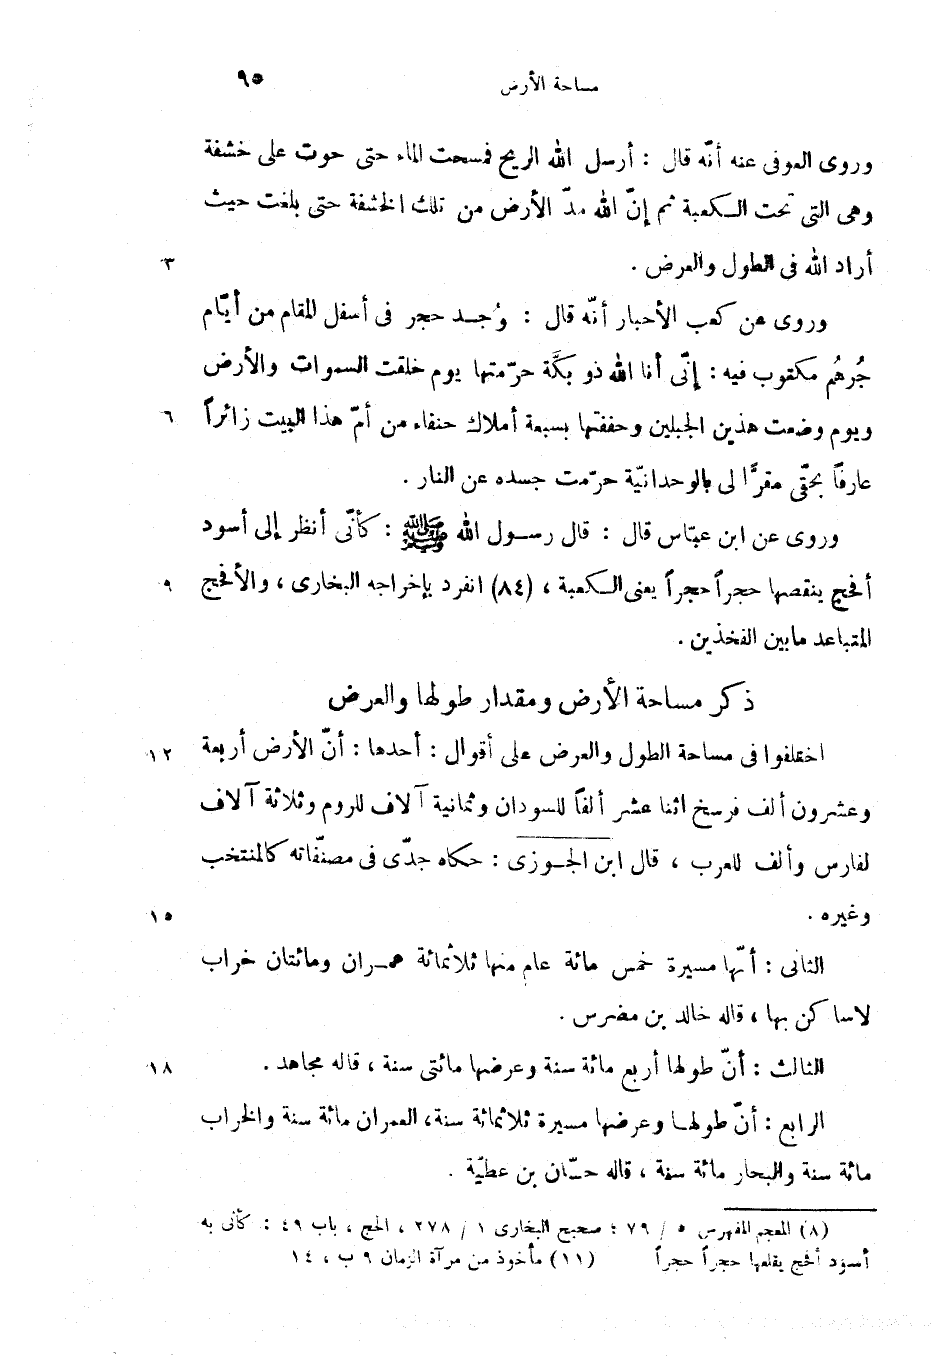 مساحة الأرض ٩٥
وروى العوفى عنه أنّه قال : أرسل الله الريح فمسحت الماء حتى حوت على خشفة
وهى التى تحت الكعبة ثم إنّ الله مدّ الأرض من تلك الخشفة حتى بلغت حيث
أراد الله فى الطول والعرض . ٣
وروى عن كعب الأحبار أنّه قال : وُجد حجر فى أسفل المقام من أيّام
جُرهُم مكتوب فيه : إنّى أنا الله ذو بكَّة حرّمتها يوم خلقت السموات والأرض
ويوم وضعت هذين الجبلين وحففتها بسبعة أملاك حنفاء من أمّ هذا البيت زائراً ٦
عارفاً بحقّى مقرًّا لى بالوحدانيّة حرّمت جسده عن النار .
وروى عن ابن عبّاس قال : قال رسول الله ﷺ : كأنّى أنظر إلى أسود
أفحج ينقصها حجراً حجراً يعنى الكعبة ، (٨٤) انفرد بإخراجه البخارى ، والأفحج ٩
المتباعد مابين الفخذين .
ذكر مساحة الأرض ومقدار طولها والعرض
اختلفوا فى مساحة الطول والعرض على أقوال : أحدها : أنّ الأرض أربعة ١٢
وعشرون ألف فرسخ اثنا عشر ألفاً للسودان وثمانية آلاف للروم وثلاثة آلاف
لفارس وألف للعرب ، قال ابن الجوزى : حكاه جدّى فى مصنّفاته كالمنتخب
وغيره . ١٥
الثانى : أنّها مسيرة خمس مائة عام منها ثلاثمائة عمران ومائتان خراب
لاساكن بها ، قاله خالد بن مضرس .
الثالث : أنّ طولها أربع مائة سنة وعرضها مائتى سنة ، قاله مجاهد . ١٨
الرابع : أنّ طولها وعرضها مسيرة ثلاثمائة سنة، العمران مائة سنة والخراب
مائة سنة والبحار مائة سنة ، قاله حسّان بن عطيّة .
(٨) المعجم المفهرس ٥ / ٧٩ ؛ صحيح البخارى ١ / ٢٧٨ ، الحج ، باب ٤٩ : كأنى به
أسود أفحج يقلعها حجراً حجراً (١١) مأخوذ من مرآة الزمان ٩ ب ، ١٤